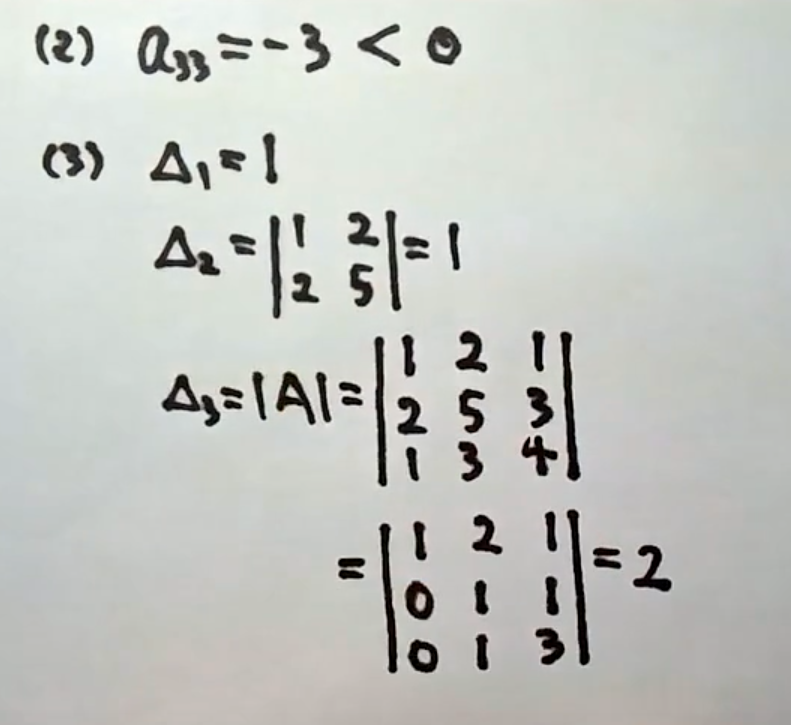 (2) a₃₃ = -3 < 0
(3) Δ₁ = 1
Δ₂ = |1 2| = 1
|2 5|
Δ₃ = |A| = |1 2 1|
|2 5 3|
|1 3 4|
= |1 2 1| = 2
|0 1 1|
|0 1 3|